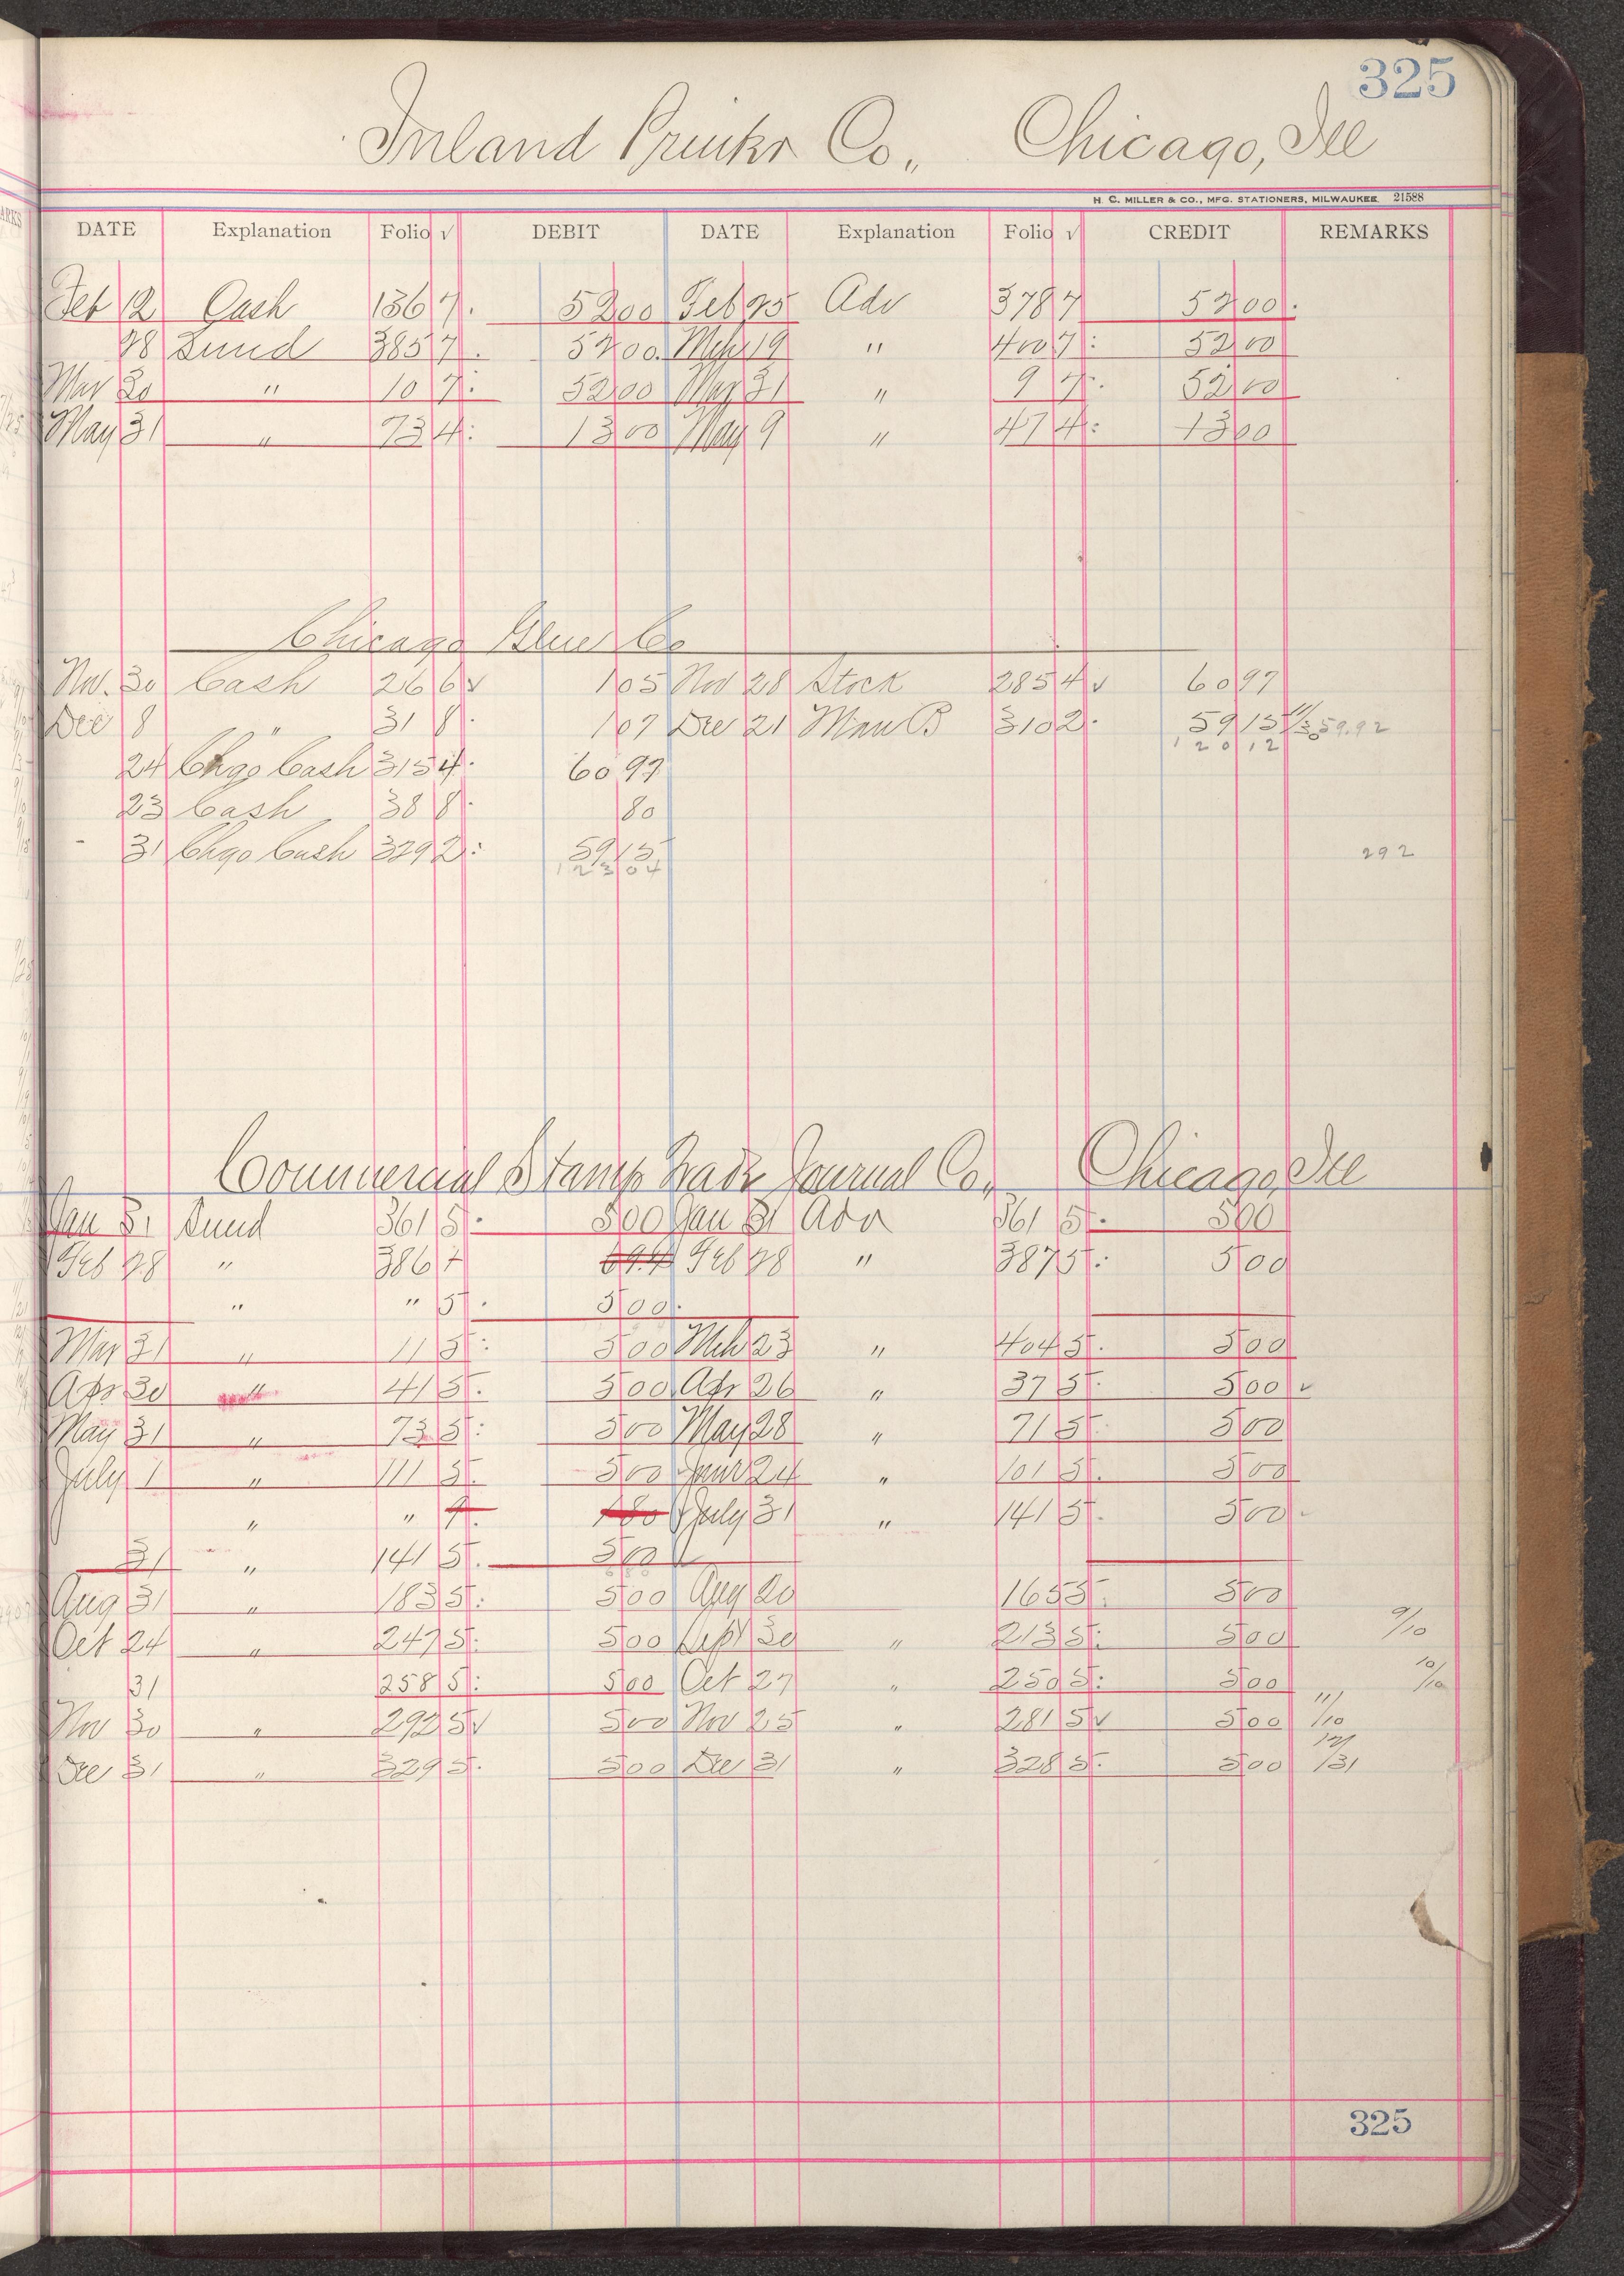 325
Inland Printer Co., Chicago, Ill
H. C. MILLER & CO., MFG. STATIONERS, MILWAUKEE 21588
DATE Explanation Folio √ DEBIT DATE Explanation Folio √ CREDIT REMARKS
Feb 12 Cash 136 7. 52 00 Feb 25 Adv 378 7 52 00.
28 Sund 385 7. 52 00. Mch 19 " 400 7: 52 00
Mar 30 " 10 7: 52 00 Mar 31 " 9 7: 52 00
May 31 " 73 4: 13 00 May 9 " 47 4: 13 00
Chicago Glue Co
Nov. 30 Cash 26 6 √ 1 05 Nov 28 Stock 285 4 √ 60 97
Dec 8 " 31 8. 1 07 Dec 21 Man B 310 2: 59 15 11/30 59.92
120 12
24 Chgo Cash 315 4: 60 97
23 Cash 38 8. 80
31 Chgo Cash 329 2: 59 15 292
123 04
Commercial Stamp Trade Journal Co., Chicago, Ill
Jan 31 Sund 361 5. 5 00 Jan 31 Adv 361 5. 5 00
Feb 28 " 386 7 Feb 28 " 387 5: 5 00
" " 5. 5 00.
Mar 31 " 11 5: 5 00 Mch 23 " 404 5. 5 00
Apr 30 " 41 5. 5 00 Apr 26 " 37 5. 5 00 √
May 31 " 73 5: 5 00 May 28 " 71 5. 5 00
July 1 " 111 5. 5 00 June 24 " 101 5. 5 00
" " 7. 1 80 July 31 " 141 5. 5 00
31 " 141 5. 5 00
Aug 31 " 183 5: 5 00 Aug 20 165 5: 5 00
Oct 24 " 247 5: 5 00 Sept 30 " 213 5: 5 00 9/10
31 258 5: 5 00 Oct 27 " 250 5: 5 00 10/10
Nov 30 " 292 5 √ 5 00 Nov 25 " 281 5 √ 5 00 11/10
Dec 31 " 329 5. 5 00 Dec 31 " 328 5. 5 00 12/31
325